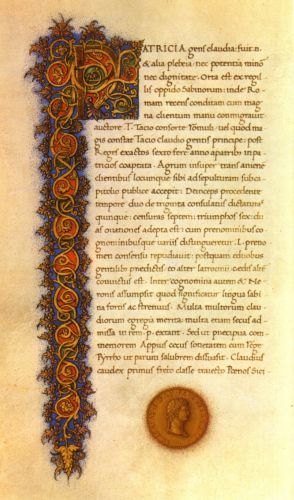 PATRICIA gens claudia: fuit .n.
& alia plebeia: nec potentia mino
nec dignitate. Orta est ex regil
lis oppido Sabinorum: inde Ro
mam recens conditam cum mag
na clientum manu conmigravit
auctore .T. Tacio consorte Romuli: vel quod magis
constat Tacio Claudio gentis principe: post
Reges exactos sexto fere anno a patribus in pa
tricios cooptata. Agrum insuper trans anienem
clientibus locumque sibi ad sepulturam sub ca
pitolio publice accepit. Deinceps procedente
tempore duo de triginta consulatus dictatura
quinque: censuras septem: triumphos sex: du
as ovationes adepta est: cum prenominibus co
gnominibusque variis distingueretur. L. preno
men consensu repudiavit: postquam e duobus
gentilibus preditis eo alter latrocinii: cedis alter
convictus est. Inter cognomina autem & Ne
ronis assumpsit quod significatur lingua sabi
na fortis ac strenuus. Multa multorum clau
diorum egregia merita: multa etiam secus ad
missa in rem .p. extant. Sed ut precipua com
memorem Appius cecus societatem cum rege
Pyrrho ut parum salubrem dissuasit. Claudius
caudex primus freto classe traiecto Poenos Sici